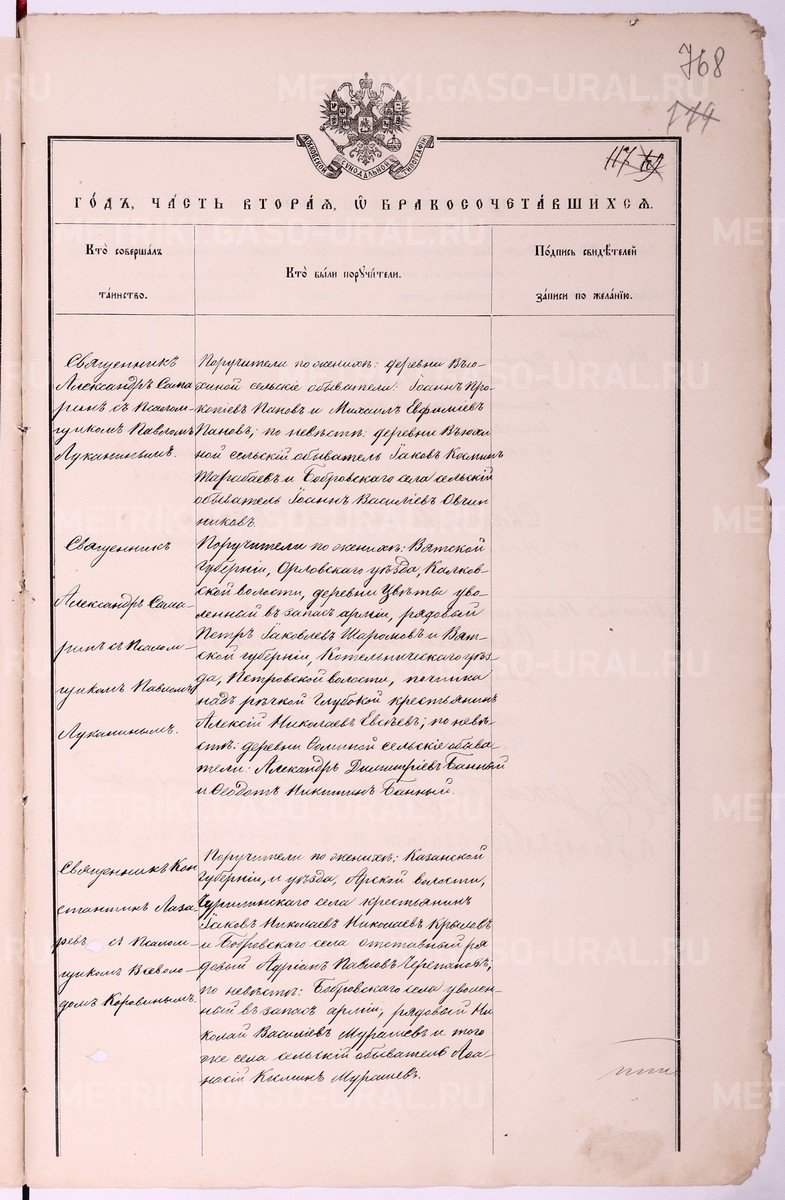 768
114
117
МОСКОВСКОЙ СѴНОДАЛЬНОЙ ТИПОГРАФІИ
ГОДЪ, ЧАСТЬ ВТОРАЯ, Ѿ БРАКОСОЧЕТАВШИХСЯ.
Кто совершалъ таинство.
Кто были поручители.
Подпись свидѣтелей записи по желанію.
Священникъ
Александръ Сама
ринъ съ Псалом-
щикомъ Павломъ
Луканинымъ.
Поручители по женихѣ: деревни Вью-
хиной сельскіе обыватели: Іоаннъ Про
копіевъ Пановъ и Михаилъ Евфиміевъ
Пановъ; по невѣстѣ: деревни Вьюхи
ной сельскій обыватель Іаковъ Козминъ
Тарабаевъ и Бобровскаго села сельскій
обыватель Іоаннъ Василіевъ Овчин
никовъ.
Священникъ
Александръ Сама-
ринъ съ Псалом-
щикомъ Павломъ
Луканинымъ.
Поручители по женихѣ: Вятской
губерніи, Орловскаго уѣзда, Калков-
ской волости, деревни Цвѣты уво
ленный въ запасъ арміи, рядовый
Петръ Іаковлевъ Шаромовъ и Вят-
ской губерніи, Котельническаго уѣз-
да, Петровской волости, починка
надъ рѣчкой Глубокой крестьянинъ
Алексій Николаевъ Евсѣевъ; по невѣ-
стѣ: деревни Соминой сельскіе обыва-
тели: Александръ Димитріевъ Банный
и Ѳеодотъ Никитинъ Банный.
Священникъ Кон
стантинъ Лаза
ревъ съ Псалом-
щикомъ Всеволо-
домъ Коровинымъ.
Поручители по женихѣ: Казанской
губерніи, и уѣзда, Арской волости,
Чурилинскаго села крестьянинъ
Іаковъ Николаевъ Николаевъ Крыловъ
и Бобровскаго села отставный ря
довый Адріанъ Павловъ Черепановъ;
по невѣстѣ: Бобровскаго села уволен-
ный въ запасъ арміи, рядовый Ни
колай Василіевъ Мурашевъ и того
же села сельскій обыватель Аѳа-
насій Козминъ Мурашевъ.
METRIKI.GASO-URAL.RU